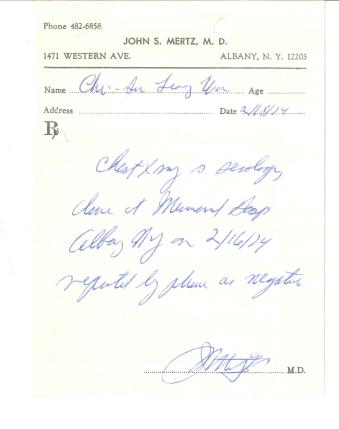 Phone 482-6858
JOHN S. MERTZ, M. D.
1471 WESTERN AVE. ALBANY, N. Y. 12203
Name Age
Address Date 2/18/74
Rx
Chest Xray s serology
done at Memorial Hosp
Albany NY on 2/16/74
reported by phone as negative
M.D.